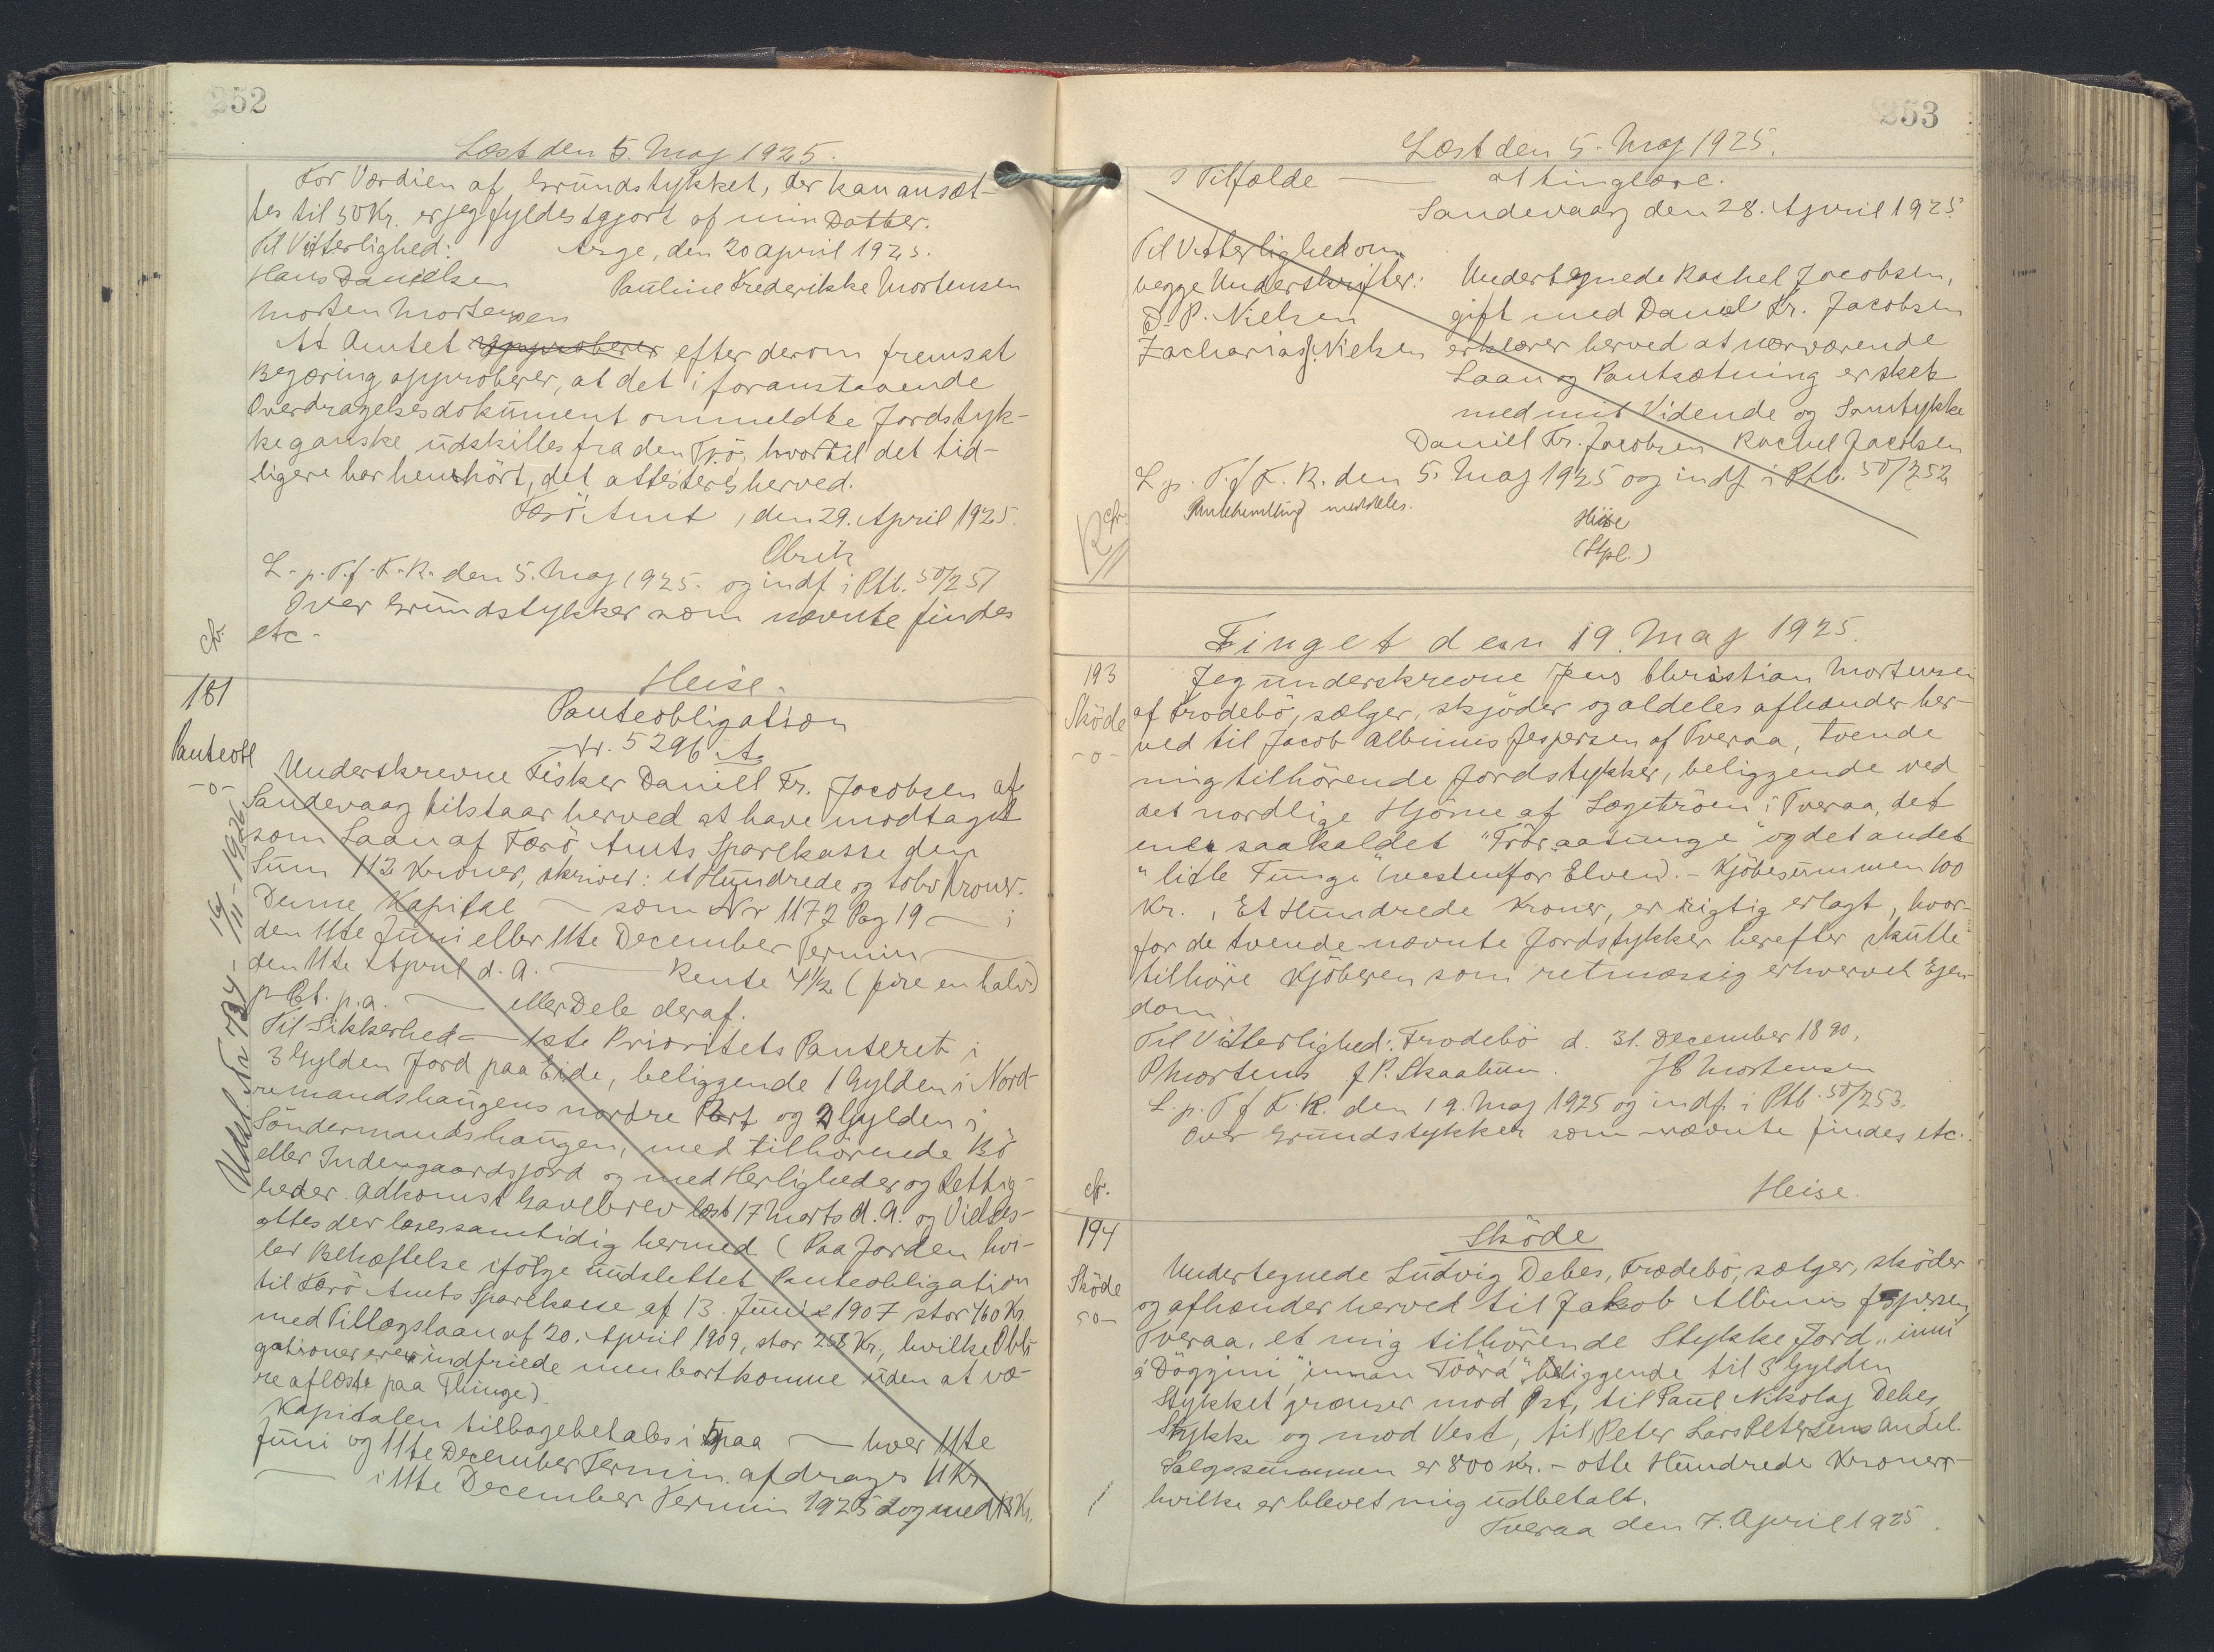 252
Læst den 5. Maj 1925.
For Værdien af Grundstykket, der kan ansæt-
tes til 50 Kr. er jeg fyldestgjort af min Datter.
Til Vitterlighed: Arge, den 20 april 1925.
Hans Danielsen Pauline Frederikke Mortensen
Morten Mortensen
At Amtet approberer efter derom fremsat
Begæring approberer, at det i foranstaaende
Overdragelsesdokument ommeldte Jordstyk-
ke ganske udskilles fra den Tjö, hvortil det tid-
ligere har henhört, det attesteres herved.
Færö Amt, den 29. April 1925.
L. p. T. f. F. R. den 5. Maj 1925. og indf i Ptb. 50/251
Over Grundstykker som nævnte findes
cfr. etc.
Heise.
181
Panteobl
-o-
Panteobligation
Nr. 5296 A
Underskrevne Fisker Daniell Fr. Jacobsen af
Sandevaag tilstaar herved at have modtaget
som Laan af Færö Amts Sparekasse den
Sum 112 Kroner, skriver: et Hundrede og tolv Kroner.
Denne Kapital — som Nr 1172 Pag 19 — i
den 11te Juni eller 11te December Termin —
den 11te April d. A. — Rente 4 1/2 (fire en halv)
p Ct. p. a. — eller Dele deraf.
Til Sikkerhed — 1ste Prioritets Panteret i
3 Gylden Jord paa Eide, beliggende 1 Gylden i Nord-
remandshaugens nordre Part og 2 Gylden i
Söndermandshaugen, med tilhörende Bö
eller Indengaardsjord og med Herligheder og Rettig-
heder. Adkomst Gavebrev læst 17 Marts d. A. og Vielses-
attes der læses samtidig hermed (Paa Jorden hvi-
ler Behæftelse ifölge uudslettet Panteobligation
til Færö Amts Sparekasse af 13. Juni 1907 stor 460 Kr.
med Tillægslaan af 20. April 1909, stor 258 Kr., hvilke Obli-
gationer ere indfriede men bortkomne uden at væ-
re aflæste paa Thinge).
Kapitalen tilbagebetales i paa — hver 11te
Juni og 11te December Termin afdrages 11 Kr
— i 11te December Termin 1925 dog med 13 Kr.
Udsl. Nr 734 - 16/11 - 1926
253
Læst den 5. Maj 1925.
i Tilfælde — at tinglæse.
Sandevaag den 28. April 1925
Til Vitterlighed om
begge Underskrifter: Undertegnede Rachel Jacobsen,
D. P. Nielsen gift med Daniel Fr. Jacobsen
Zacharias J. Nielsen erklærer herved at nærværende
Laan og Pantsætning er sket
med mit Vidende og Samtykke
Daniell Fr. Jacobsen Rachel Jacobsen
L. p. T. f. F. R. den 5. Maj 1925 og indf i Ptb. 50/252
cfr.
Panthemling meddeles.
Heise
(Stpl.)
Tinget den 19. Maj 1925.
193
Sköde
-o-
Jeg underskrevne Jens Christian Mortensen
af Frodebö, sælger, skjöder og aldeles afhænder her-
ved til Jacob Albinus Jespersen af Tveraa, tvende
mig tilhörende Jordstykker, beliggende ved
det nordlige Hjörne af Lægetröen i Tveraa, det
ene saakaldet "Tröraatunge" og det andet
"litle Tunge" (vestenfor Elven). - Kjöbesummen 100
Kr., Et Hundrede Kroner, er rigtig erlagt, hvor-
for de tvende nævnte Jordstykker herefter skulle
tilhöre Kjöberen som retmæssig erhvervet Ejen-
dom.
Til Vitterlighed: Frodebö d. 31. December 1890.
P Mortens J P. Skaalum. J C Mortensen
L. p. T f F. R. den 19. Maj 1925 og indf i Ptb. 50/253.
Over Grundstykker som nævnte findes etc.
cfr. Heise.
194
Sköde
-o-
Sköde
Undertegnede Ludvig Debes, Frodebö, sælger, sköder
og afhænder herved til Jakob Albinus Jespersen,
Tveraa, et mig tilhörende Stykke Jord "inni
á Döggjini", "innan Tvöra", beliggende til 3 Gylden
Stykket grænser mod Öst, til Paul Nikolaj Debes
Stykke og mod Vest, til Peter Lars Petersens Andel.
Salgssummen er 800 Kr. - otte Hundrede Kroner -
hvilke er blevet mig udbetalt.
Tveraa den 7. April 1925.